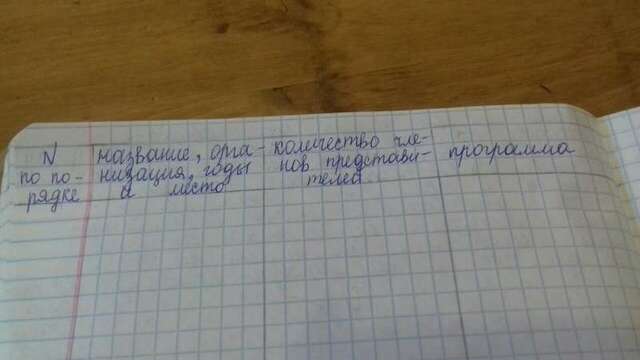 N
по по-
рядке
название, орга-
низация, годы
и место
количество чле-
нов представи-
телей
программа